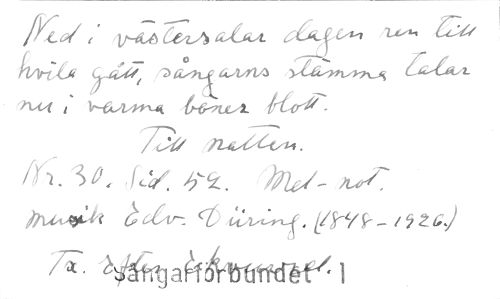 Ned i västersalar dagen ren till
hvila gått, sångarns stämma talar
nu i varma böner blott.
Till natten.
Nr. 30. Sid. 52. Mel-not.
musik Edv. Düring. (1848-1926.)
Tx. efter
Sångarförbundet 1